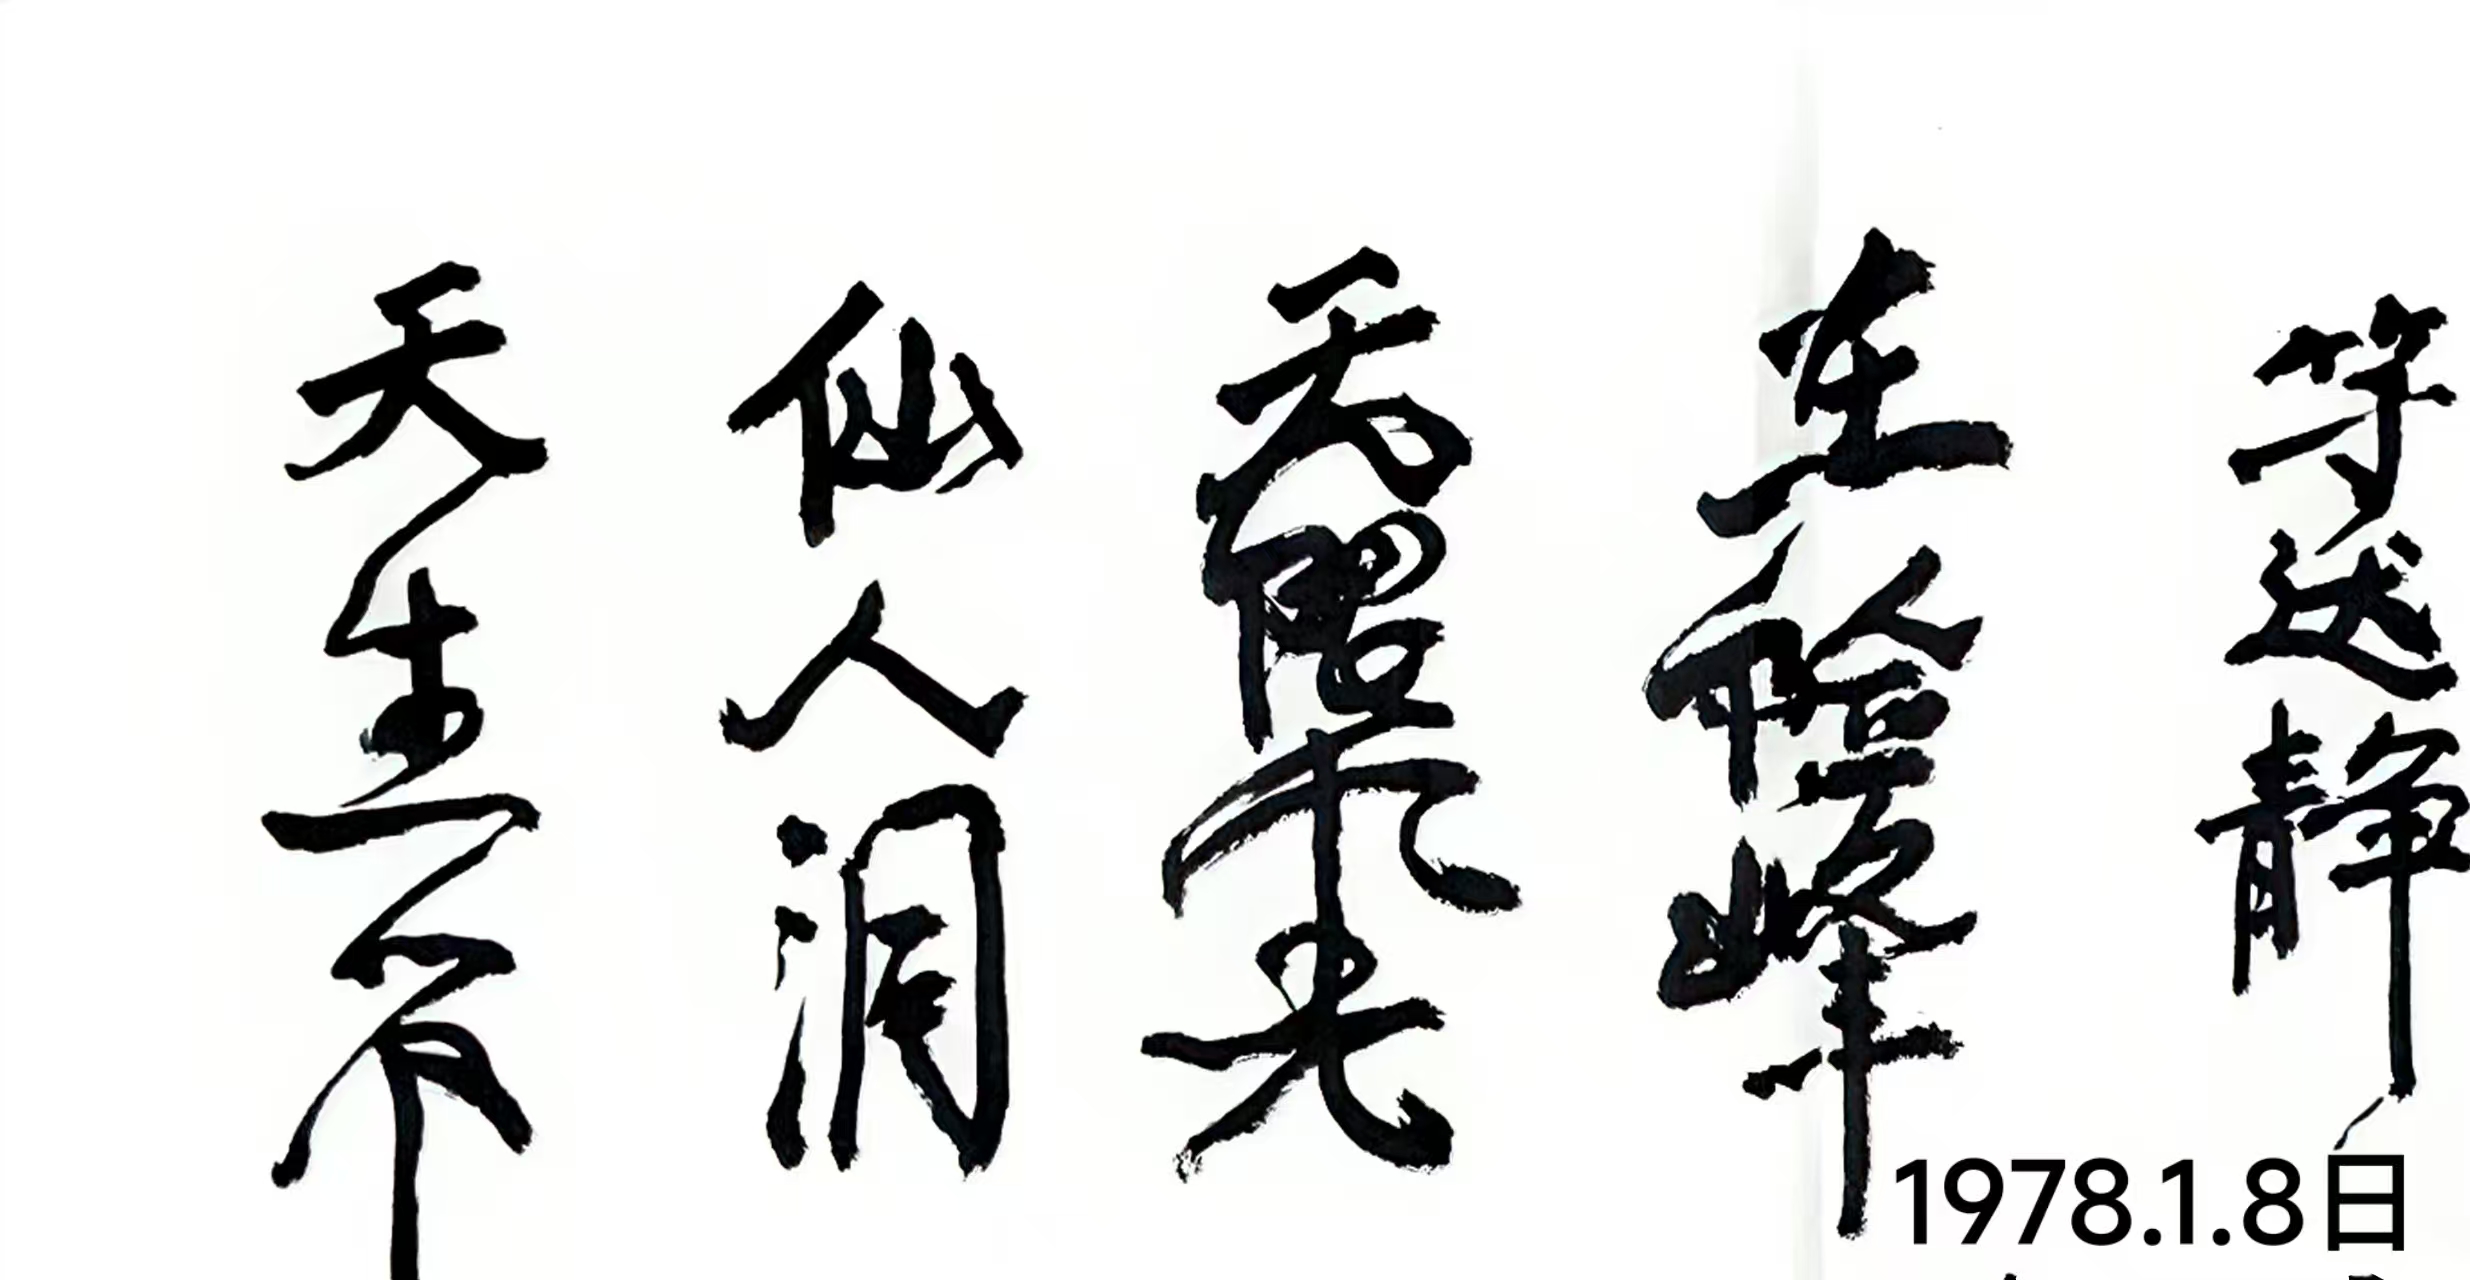 天生一个
仙人洞
无限风光
在險峰
送静
1978.1.8日